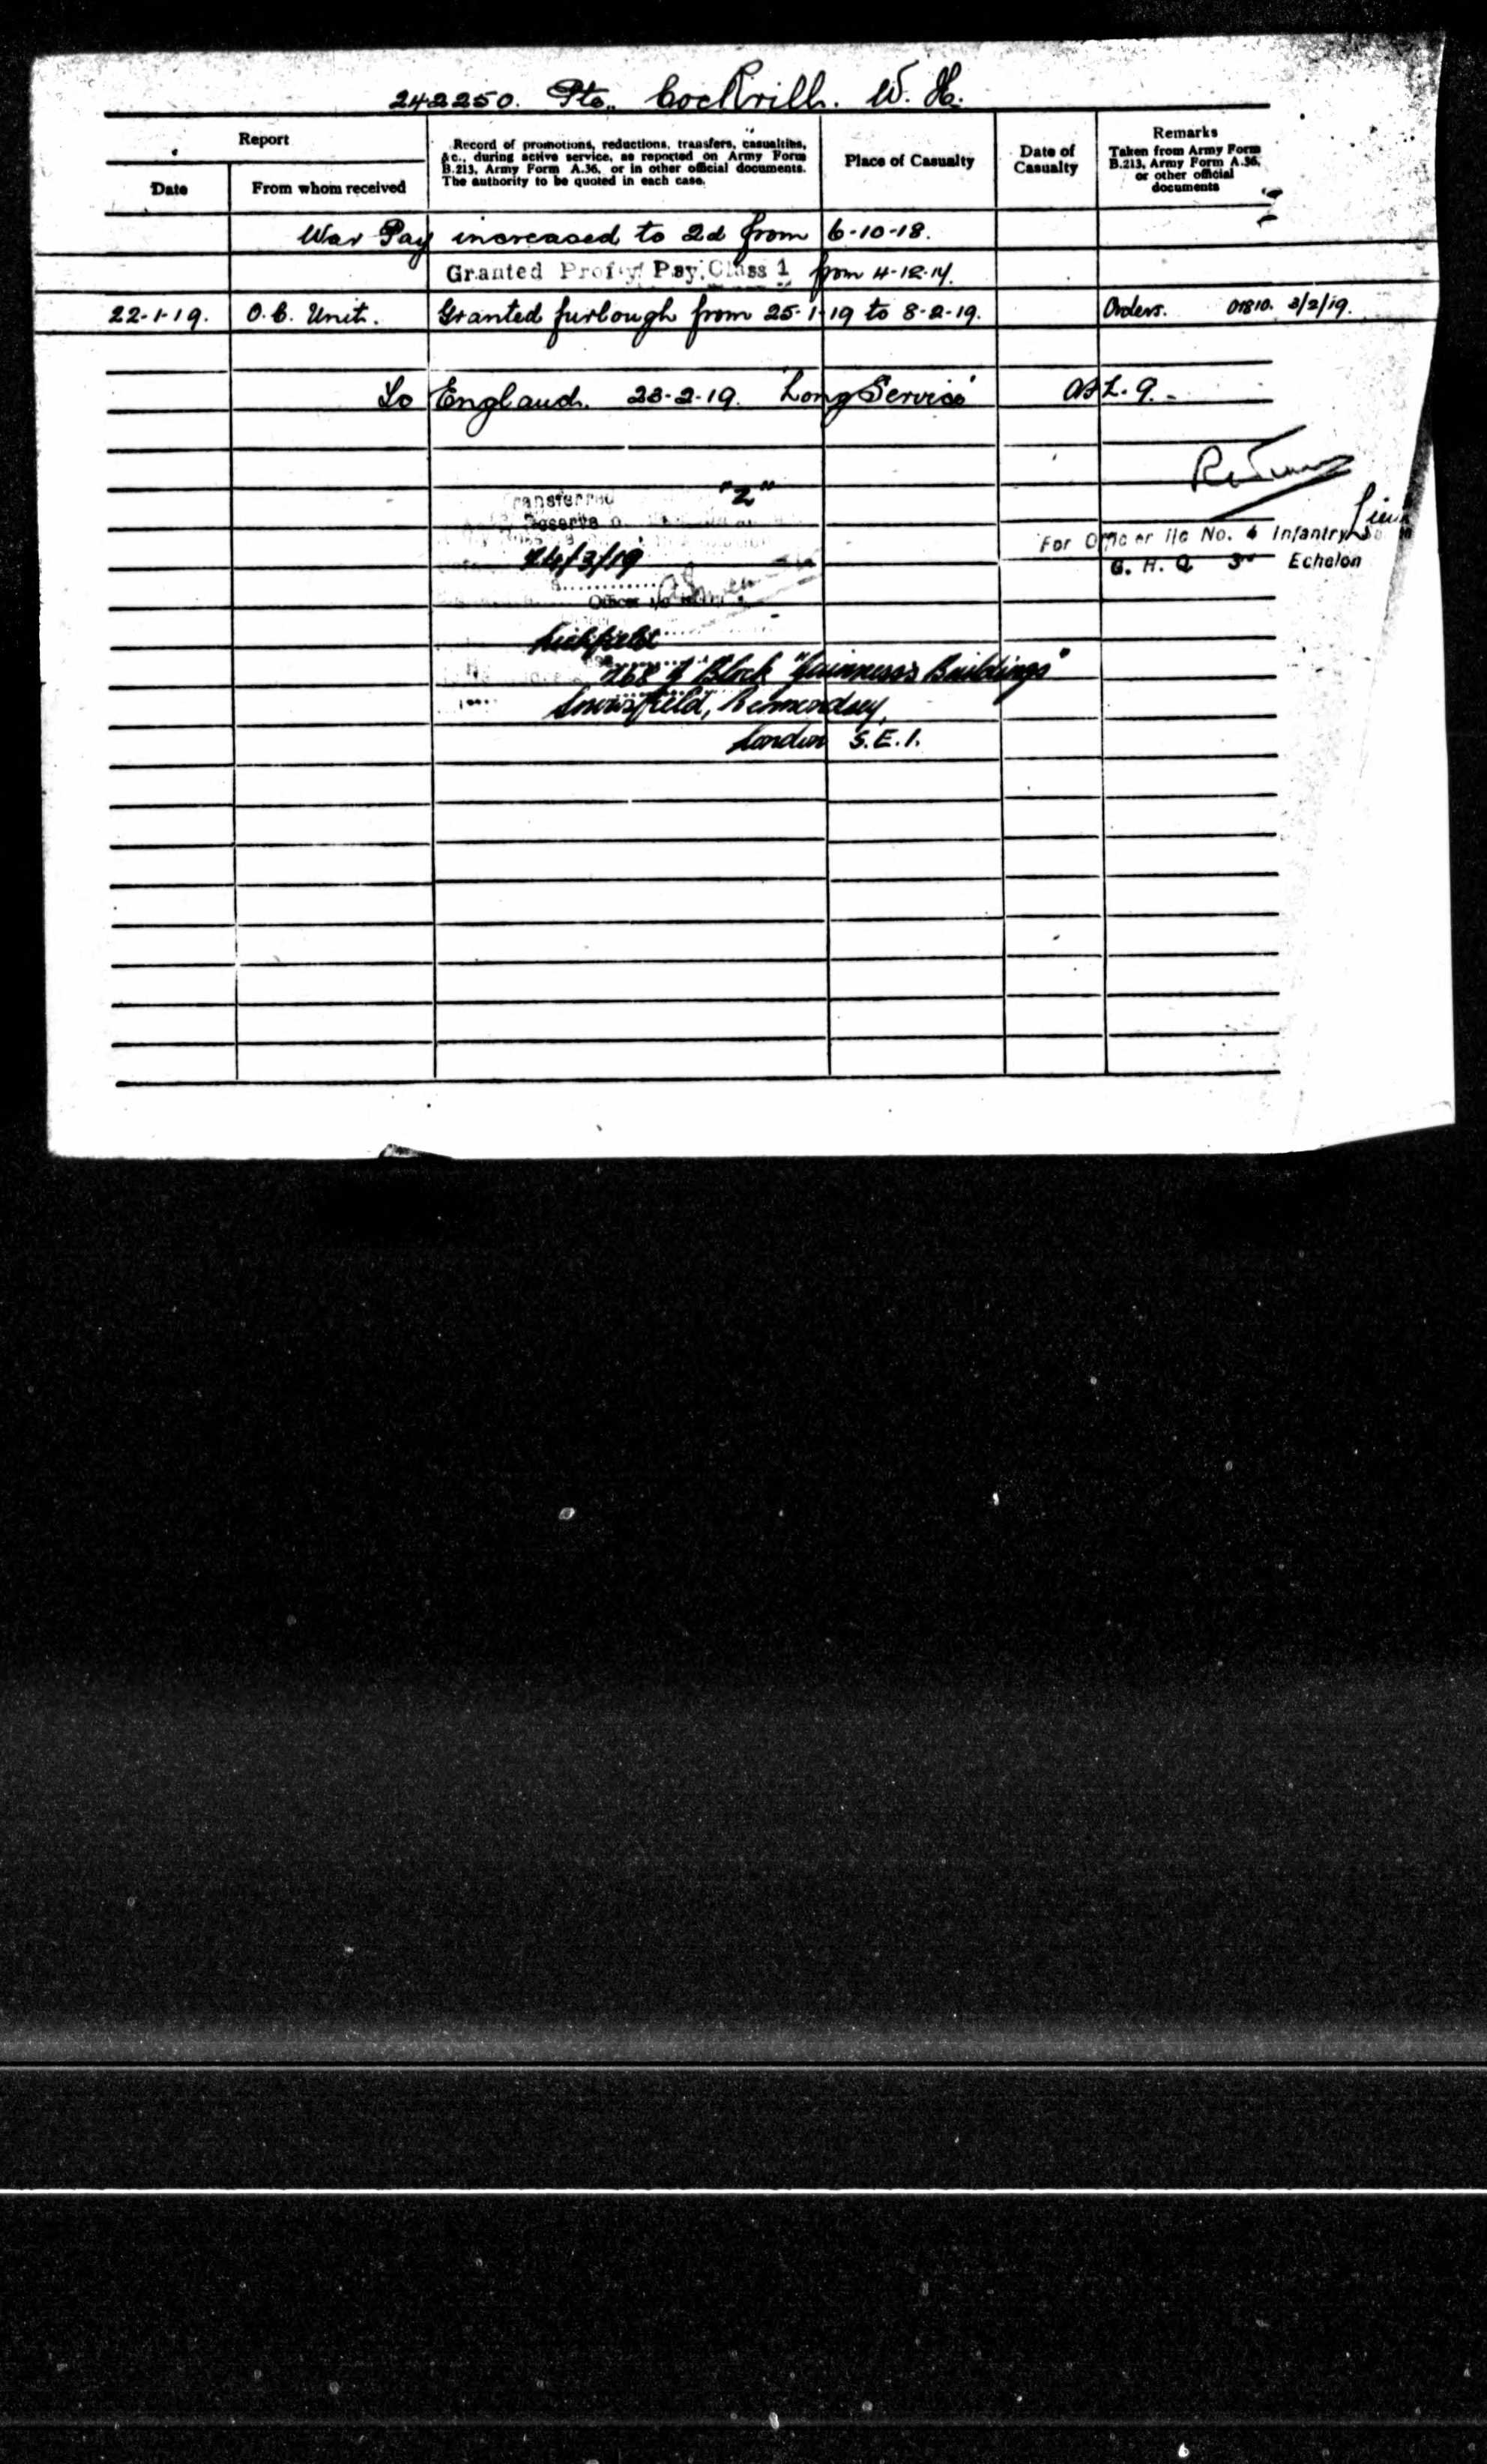 242250. Pte. Cockrill. W. H.
Report
Date
From whom received
Record of promotions, reductions, transfers, casualties,
&c., during active service, as reported on Army Form
B.213, Army Form A.36, or in other official documents.
The authority to be quoted in each case.
Place of Casualty
Date of
Casualty
Remarks
Taken from Army Form
B.213, Army Form A.36,
or other official
documents
War Pay increased to 2d from 6-10-18.
Granted Pay Class 1 from
22-1-19. O.C. Unit. Granted furlough from 25-1-19 to 8-2-19. Orders. 3/2/19.
To England. 23-2-19. "Long Service"
Transferred "Z"
Reserve
24/3/19
For Officer i/c No. Infantry
G. H. Q 3rd Echelon
Officer i/c
Lichfield
268 Block "Guinness's Buildings"
Snowsfield, Bermondsey
London S.E.1.